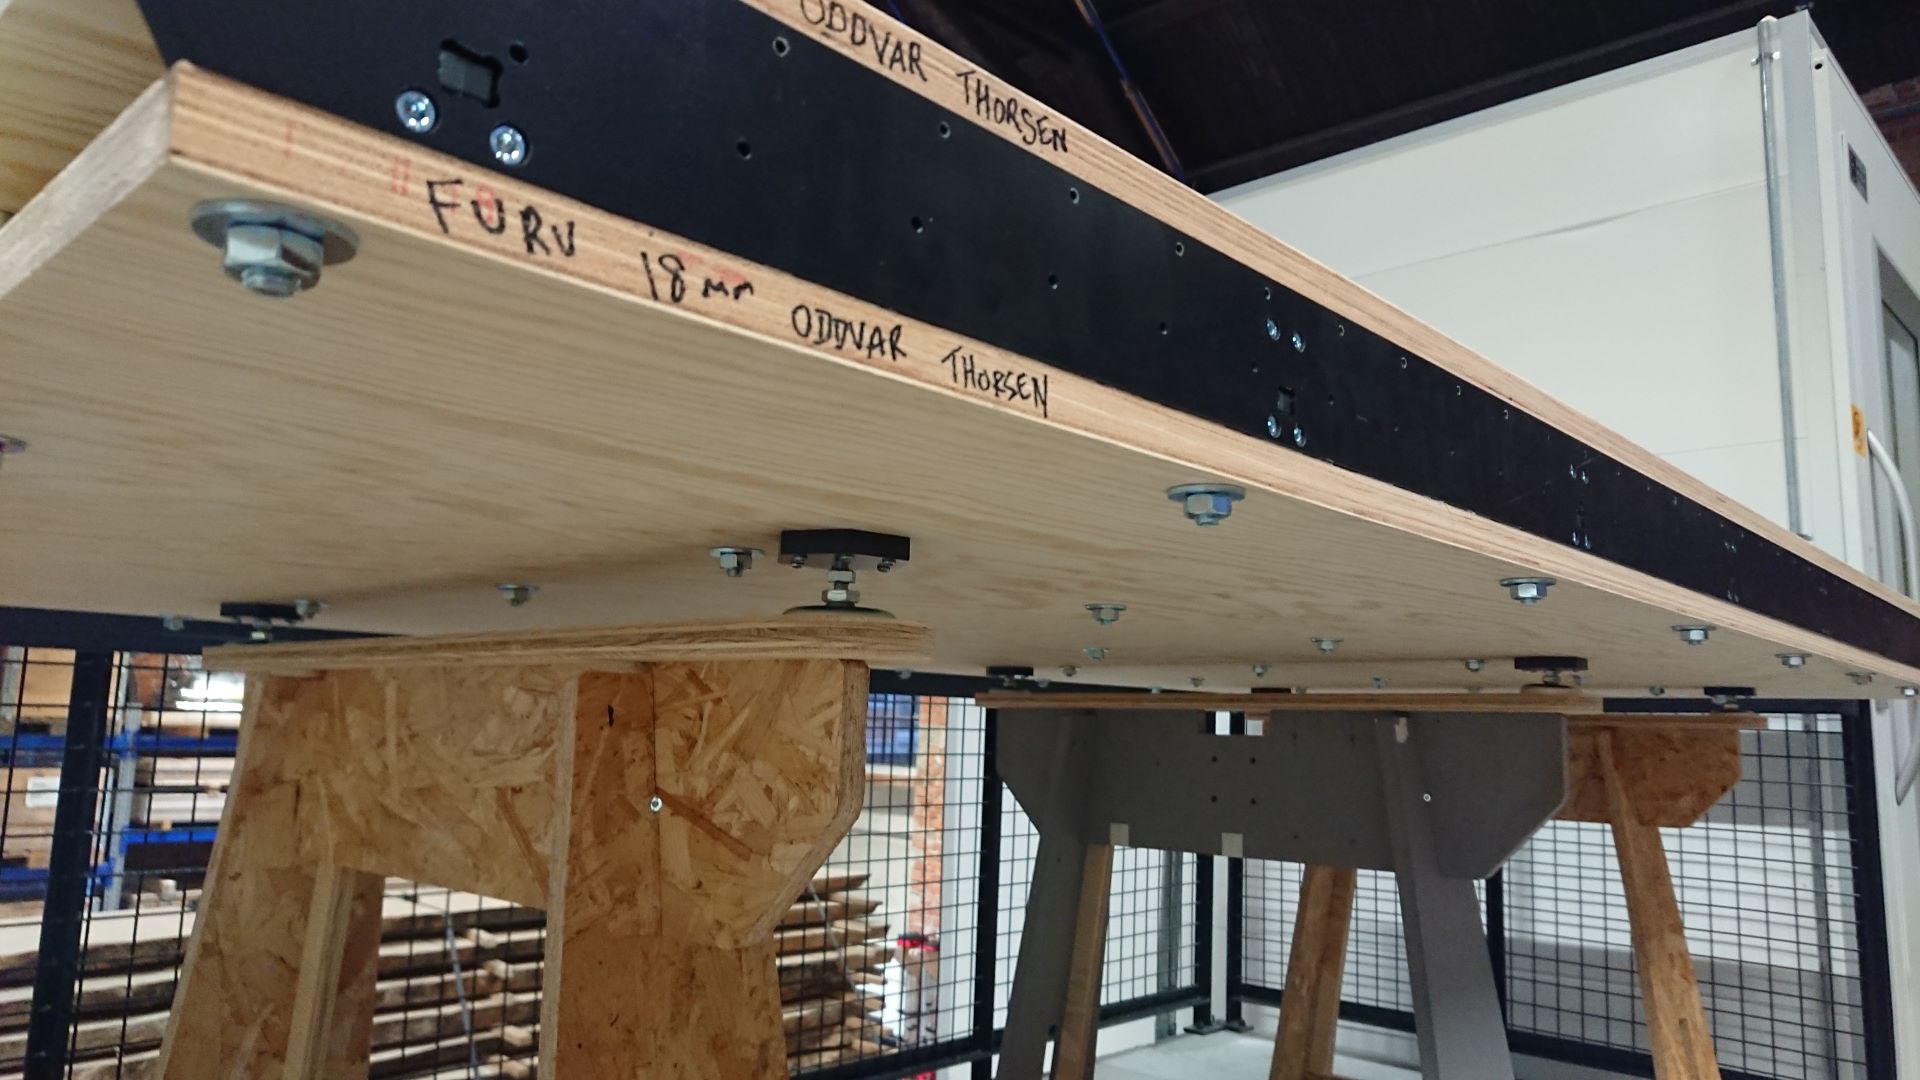 ODDVAR THORSEN
FURU 18mm ODDVAR THORSEN